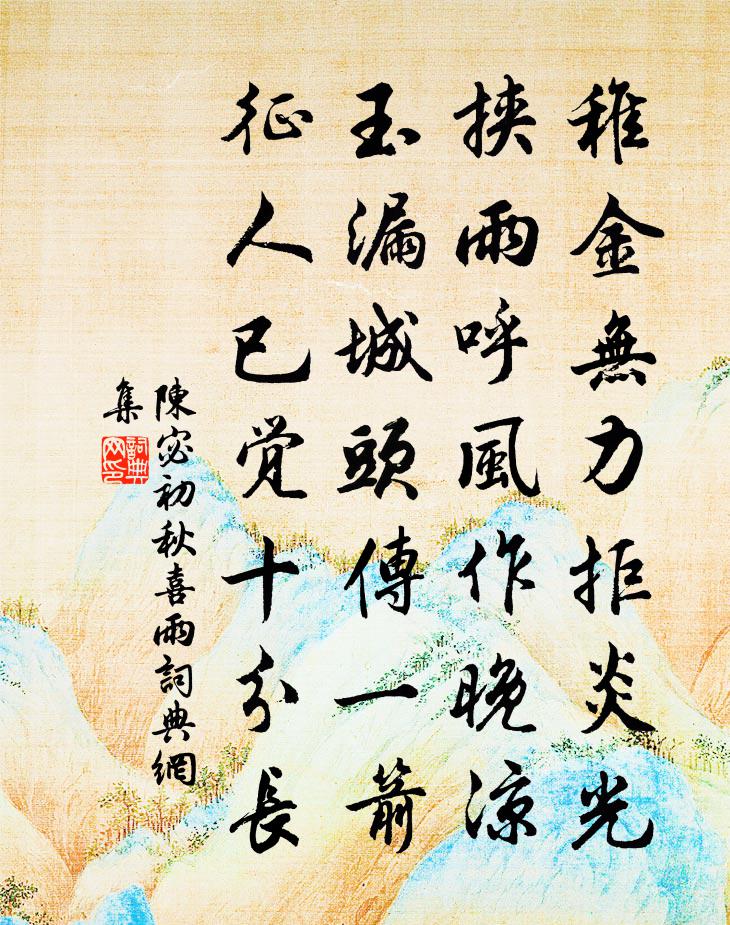 稚金無力拒炎光
挾雨呼風作晚涼
玉漏城頭傳一箭
征人已覺十分長
陳宓初秋喜雨詞典網
集
詞典
网印